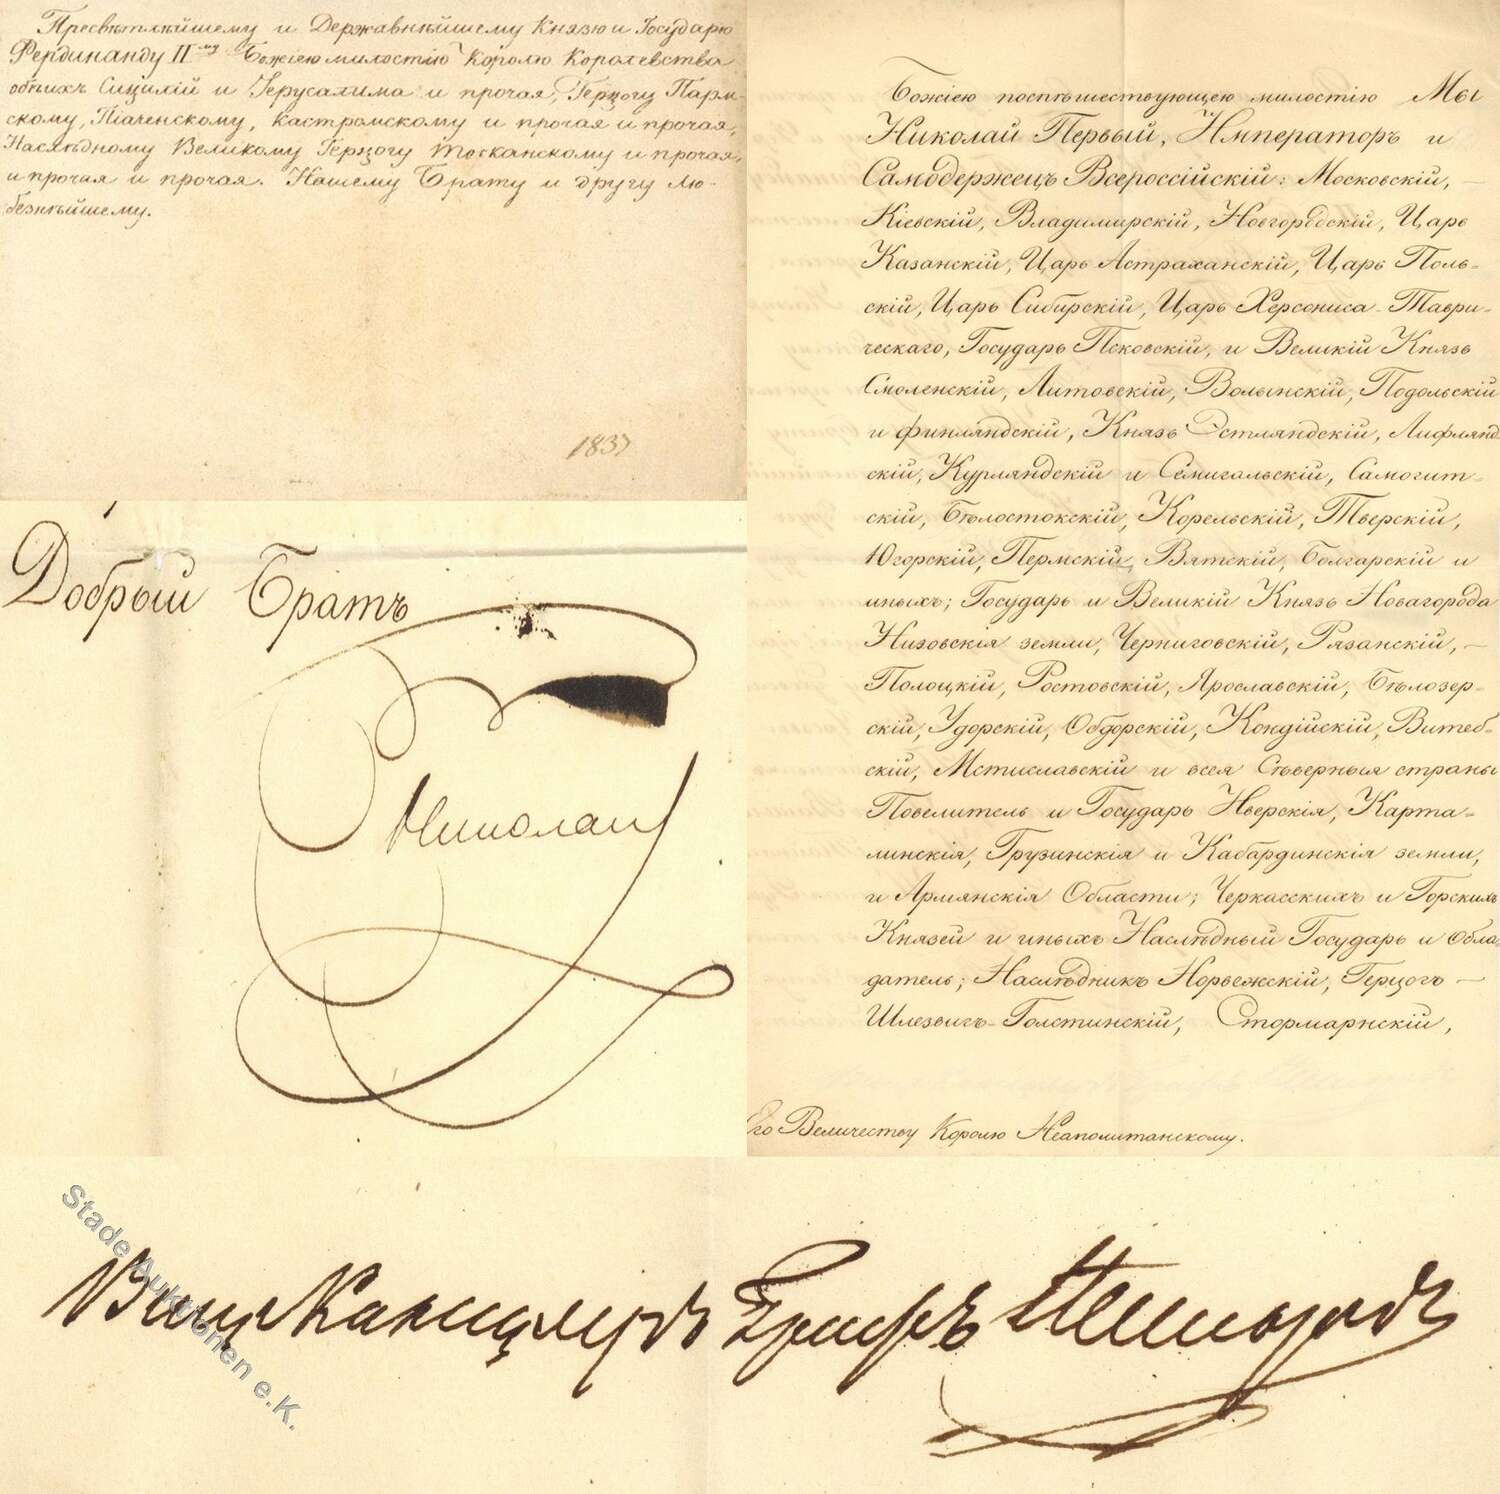 Пресвѣтлѣйшему и Державнѣйшему Князю и Государю
Фердинанду II му Божіею милостію Королю Королевства
обѣихъ Сицилій и Іерусалима и прочая, Герцогу Парм-
скому, Піаченскому, Кастромскому и прочая и прочая,
Наслѣдному Великому Герцогу Тосканскому и прочая,
и прочая и прочая. Нашему Брату и другу лю-
безнѣйшему.
1837
Добрый Братъ
Николай
Божіею поспѣшествующею милостію Мы
Николай Первый, Императоръ и
Самодержецъ Всероссійскій: Московскій, —
Кіевскій, Владимирскій, Новгородскій, Царь
Казанскій, Царь Астраханскій, Царь Поль-
скій, Царь Сибирскій, Царь Херсониса-Таври-
ческаго, Государь Псковскій, и Великій Князь
Смоленскій, Литовскій, Волынскій, Подольскій
и Финляндскій, Князь Эстляндскій, Лифлянд
скій, Курляндскій и Семигальскій, Самогит-
скій, Бѣлостокскій, Корельскій, Тверскій,
Югорскій, Пермскій, Вятскій, Болгарскій и
иныхъ; Государь и Великій Князь Новагорода
Низовскія земли, Черниговскій, Рязанскій, —
Полоцкій, Ростовскій, Ярославскій, Бѣлозер-
скій, Удорскій, Обдорскій, Кондійскій, Витеб-
скій, Мстиславскій и всея Сѣверныя страны
Повелитель и Государь Иверскія, Карта-
линскія, Грузинскія и Кабардинскія земли,
и Армянскія Области; Черкасскихъ и Горскихъ
Князей и иныхъ Наслѣдный Государь и Обла-
датель; Наслѣдникъ Норвежскій, Герцогъ —
Шлезвигъ-Голстинскій, Стормарнскій,
Его Величеству Королю Неаполитанскому.
Вице Канцлеръ Графъ Нессельродъ
Stade Auktionen e.K.